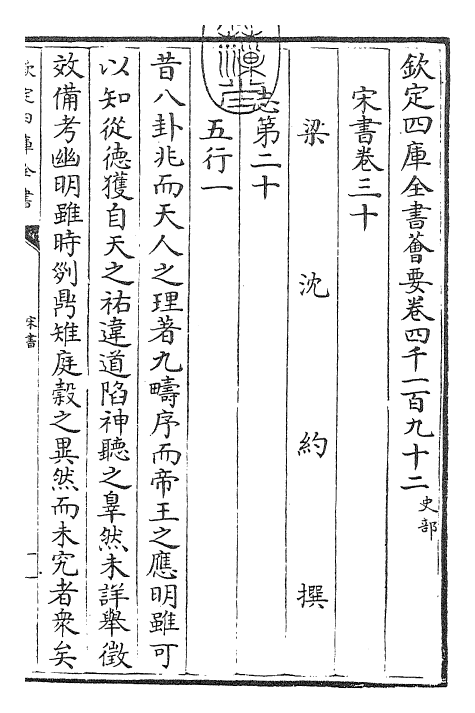 欽定四庫全書薈要卷四千一百九十二史部
宋書卷三十
梁沈約撰
志第二十
五行一
昔八卦兆而天人之理著九疇序而帝王之應明雖可
以知從德獲自天之祐違道陷神聽之辠然未詳舉徵
效備考幽明雖時列鼎雉庭榖之異然而未究者衆矣
欽定四庫全書
宋書
一